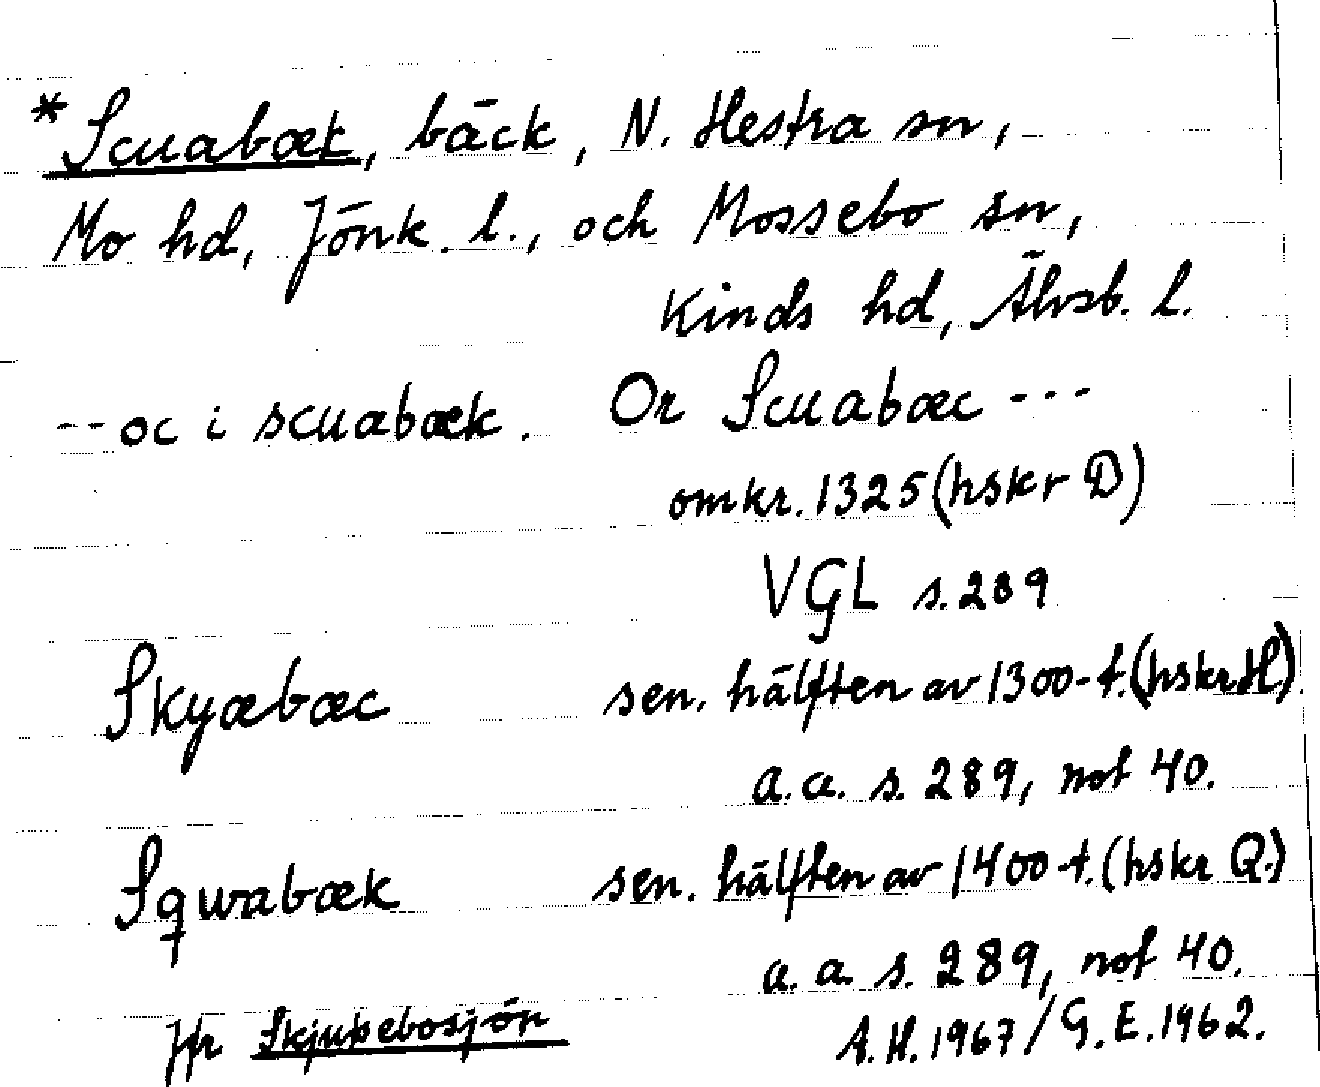 *Scuabæk, bäck, N. Hestra sn,
Mo hd, Jönk. l., och Mossebo sn,
Kinds hd, Älvsb. l.
-- oc i scuabæk. Or Scuabæc ---
omkr. 1325 (hskr D)
VGL s. 289
Skyæbæc sen. hälften av 1300-t. (hskr H)
a.a. s. 289, not 40.
Sqwabæk sen. hälften av 1400-t. (hskr Q.)
a.a. s. 289, not 40.
Jfr Skjupebosjön A.H. 1967/G.E. 1962.